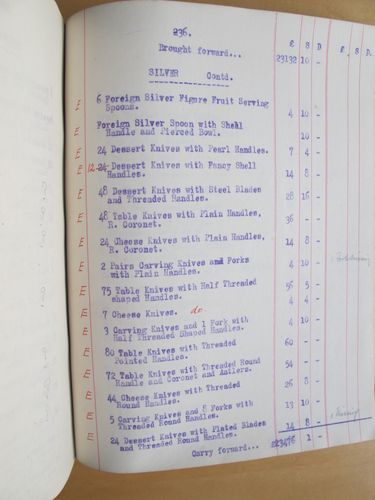 236.
£ S D £. S. D.
Brought forward... 23132 10 -
SILVER Contd.
E 6 Foreign Silver Figure Fruit Serving
Spoons. 4 10 -
Foreign Silver Spoon with Shell
E Handle and Pierced Bowl. 10 -
E 24 Dessert Knives with Pearl Handles. 7 4 -
E 12 24 Dessert Knives with Fancy Shell
Handles. 14 8 -
E 48 Dessert Knives with Steel Blades
and Threaded Handles. 28 16 -
E 48 Table Knives with Plain Handles,
R. Coronet. 36 - -
E 24 Cheese Knives with Plain Handles,
R. Coronet. 14 8 -
E 2 Pairs Carving Knives and Forks
with Plain Handles. 4 10 -
E 75 Table Knives with Half Threaded
shaped Handles. 56 5 -
E 7 Cheese Knives. do. 4 4 -
E 3 Carving Knives and 1 Fork with
Half Threaded Shaped Handles. 4 10 -
E 80 Table Knives with Threaded
Pointed Handles. 60 - -
E 72 Table Knives with Threaded Round
Handle and Coronet and Antlers. 54 - -
E 44 Cheese Knives with Threaded
Round Handles. 26 8 -
E 5 Carving Knives and 8 Forks with
Threaded Round Handles. 13 10 -
E 24 Dessert Knives with Plated Blades
and Threaded Round Handles. 14 8 -
Carry forward... £23476 1 -